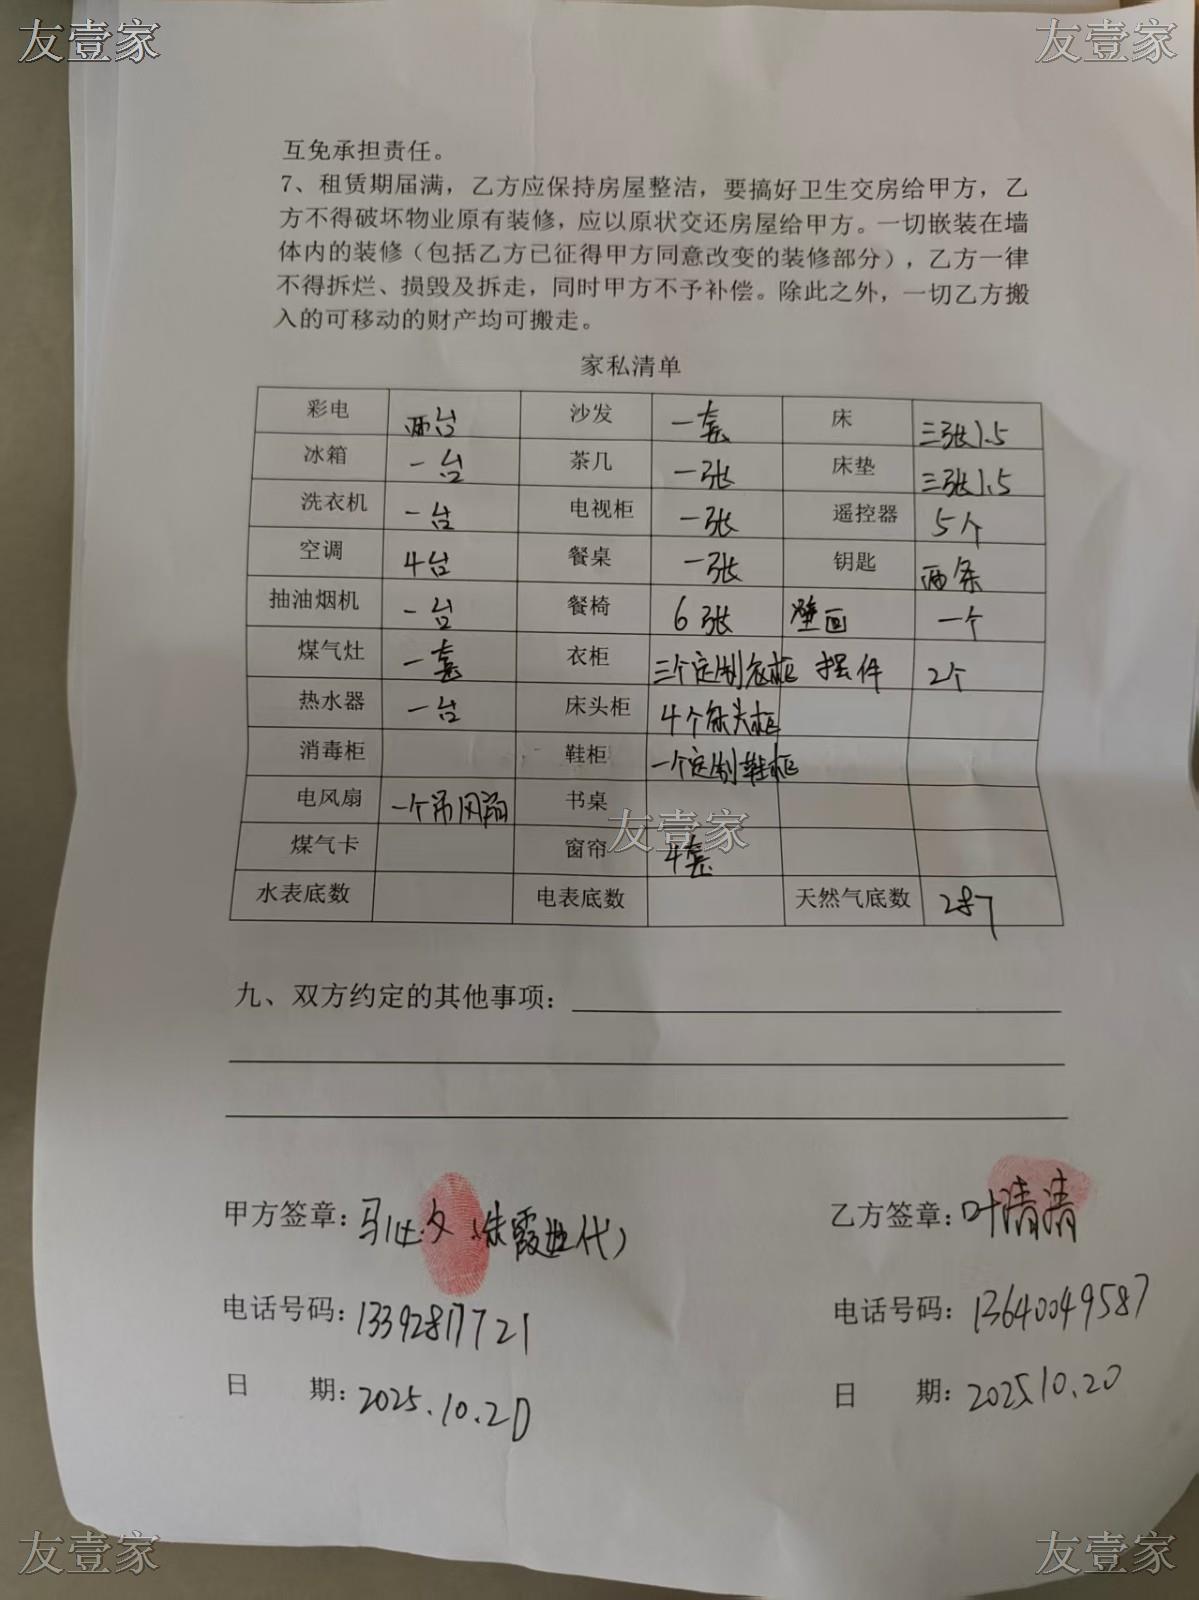 友壹家 友壹家
互免承担责任。
7、租赁期届满，乙方应保持房屋整洁，要搞好卫生交房给甲方，乙
方不得破坏物业原有装修，应以原状交还房屋给甲方。一切嵌装在墙
体内的装修（包括乙方已征得甲方同意改变的装修部分），乙方一律
不得拆烂、损毁及拆走，同时甲方不予补偿。除此之外，一切乙方搬
入的可移动的财产均可搬走。
家私清单
彩电 两台 沙发 一套 床 三张1.5
冰箱 一台 茶几 一张 床垫 三张1.5
洗衣机 一台 电视柜 一张 遥控器 5个
空调 4台 餐桌 一张 钥匙 两条
抽油烟机 一台 餐椅 6张 壁画 一个
煤气灶 一套 衣柜 三个定制衣柜 摆件 2个
热水器 一台 床头柜 4个床头柜
消毒柜 鞋柜 一个定制鞋柜
电风扇 一个吊风扇 书桌
友壹家
煤气卡 窗帘 4套
水表底数 电表底数 天然气底数 287
九、双方约定的其他事项：
甲方签章：马 文（朱霞 代） 乙方签章：叶清清
电话号码：13392817721 电话号码：13640049587
日 期：2025.10.20 日 期：2025.10.20
友壹家 友壹家